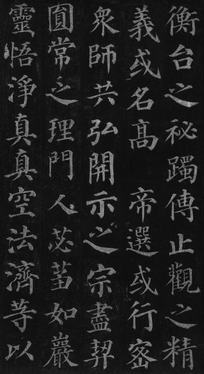 衡台之祕躅傳止觀之精
義或名高　帝選或行密
衆師共弘開示之宗盡契
圓常之理門人苾蒭如巖
靈悟淨真真空法濟等以